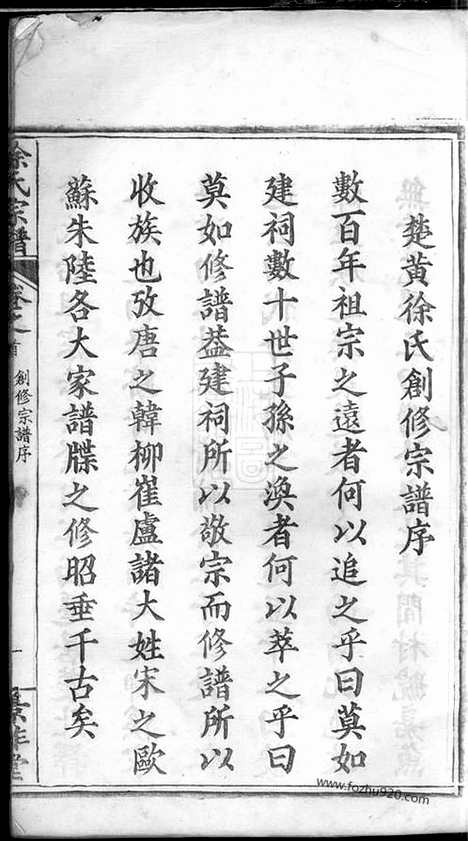 楚黄徐氏創修宗譜序
數百年祖宗之遠者何以追之乎曰莫如
建祠數十世子孫之渙者何以萃之乎曰
莫如修譜葢建祠所以敬宗而修譜所以
收族也攷唐之韓柳崔盧諸大姓宋之歐
蘇朱陸各大家譜牒之修昭垂千古矣
徐氏宗譜
卷之首
創修宗譜序
一
www.fozhu920.com